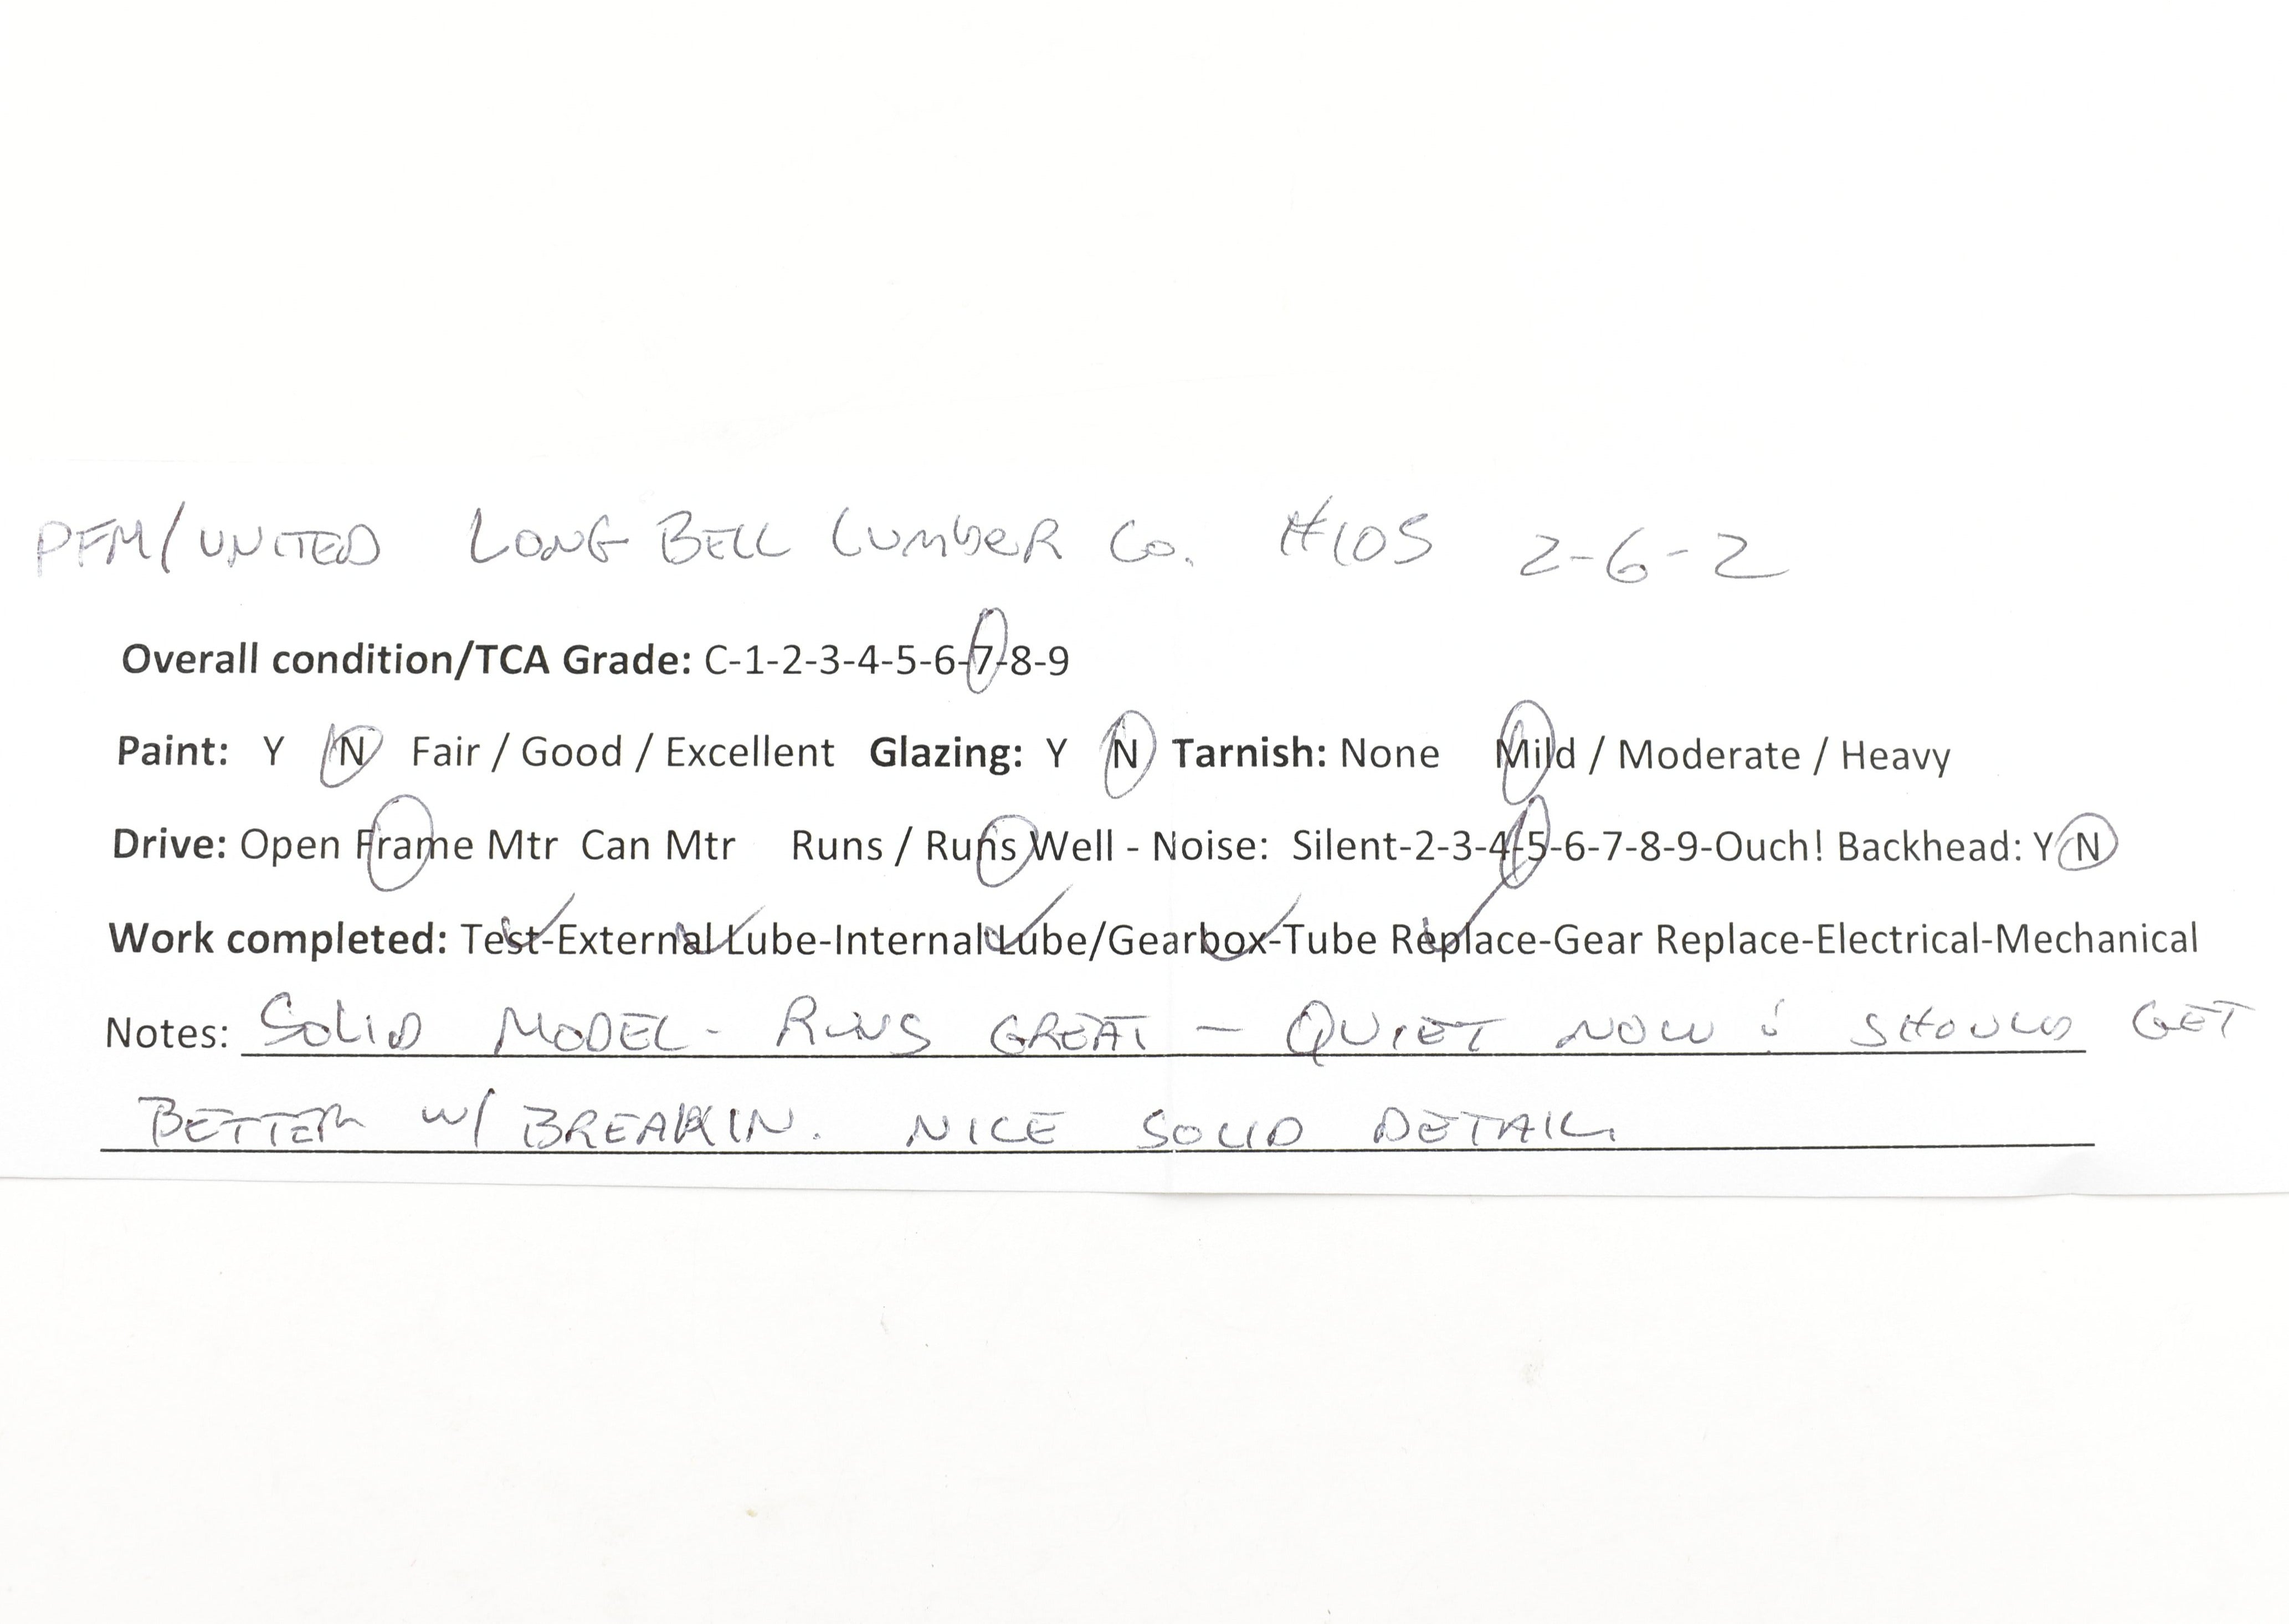 PFM/UNITED LONG BELL LUMBER Co. #105 2-6-2
Overall condition/TCA Grade: C-1-2-3-4-5-6-7-8-9
Paint: Y N Fair / Good / Excellent Glazing: Y N Tarnish: None Mild / Moderate / Heavy
Drive: Open Frame Mtr Can Mtr Runs / Runs Well - Noise: Silent-2-3-4-5-6-7-8-9-Ouch! Backhead: Y N
Work completed: Test-External Lube-Internal Lube/Gearbox-Tube Replace-Gear Replace-Electrical-Mechanical
Notes: SOLID MODEL - RUNS GREAT - QUIET NOW & SHOULD GET
BETTER W/ BREAKIN. NICE SOLID DETAIL.